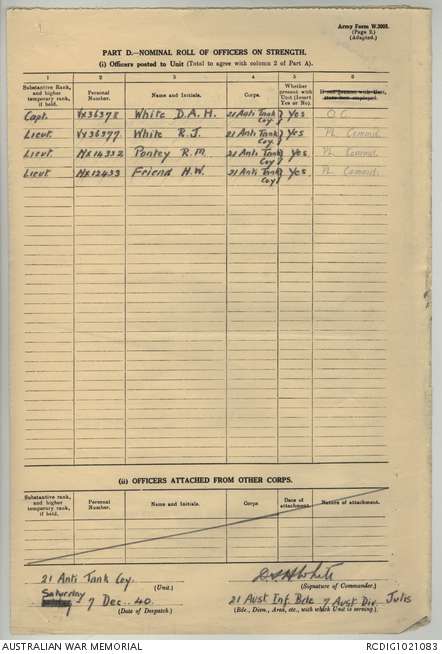 Army Form W.3008.
(Page 3.)
(Adapted.)
PART D.—NOMINAL ROLL OF OFFICERS ON STRENGTH.
(i) Officers posted to Unit (Total to agree with column 2 of Part A).
1 2 3 4 5 6
Substantive Rank, and higher temporary rank, if held. Personal Number. Name and Initials. Corps. Whether present with Unit (Insert Yes or No).
Capt. VX36378 White D.A.H. 21 Anti Tank Coy } Yes O.C.
Lieut. VX36377 White R.J. 21 Anti Tank Coy } Yes Pl. Commd.
Lieut NX14332 R.M. 21 Anti Tank Coy } Yes Pl. Commd.
Lieut NX12433 Friend H.W. 21 Anti Tank Coy } Yes Pl. Commd.
(ii) OFFICERS ATTACHED FROM OTHER CORPS.
Substantive rank, and higher temporary rank, if held. Personal Number. Name and Initials. Corps Date of attachment. Nature of attachment.
21 Anti Tank Coy. (Unit.)
DAHWhite
(Signature of Commander.)
Saturday 7 Dec. 40.
(Date of Despatch.)
21 Aust Inf. Bde 7 Aust Div. Julis
(Bde., Divn., Area, etc., with which Unit is serving.)
AUSTRALIAN WAR MEMORIAL
RCDIG1021083